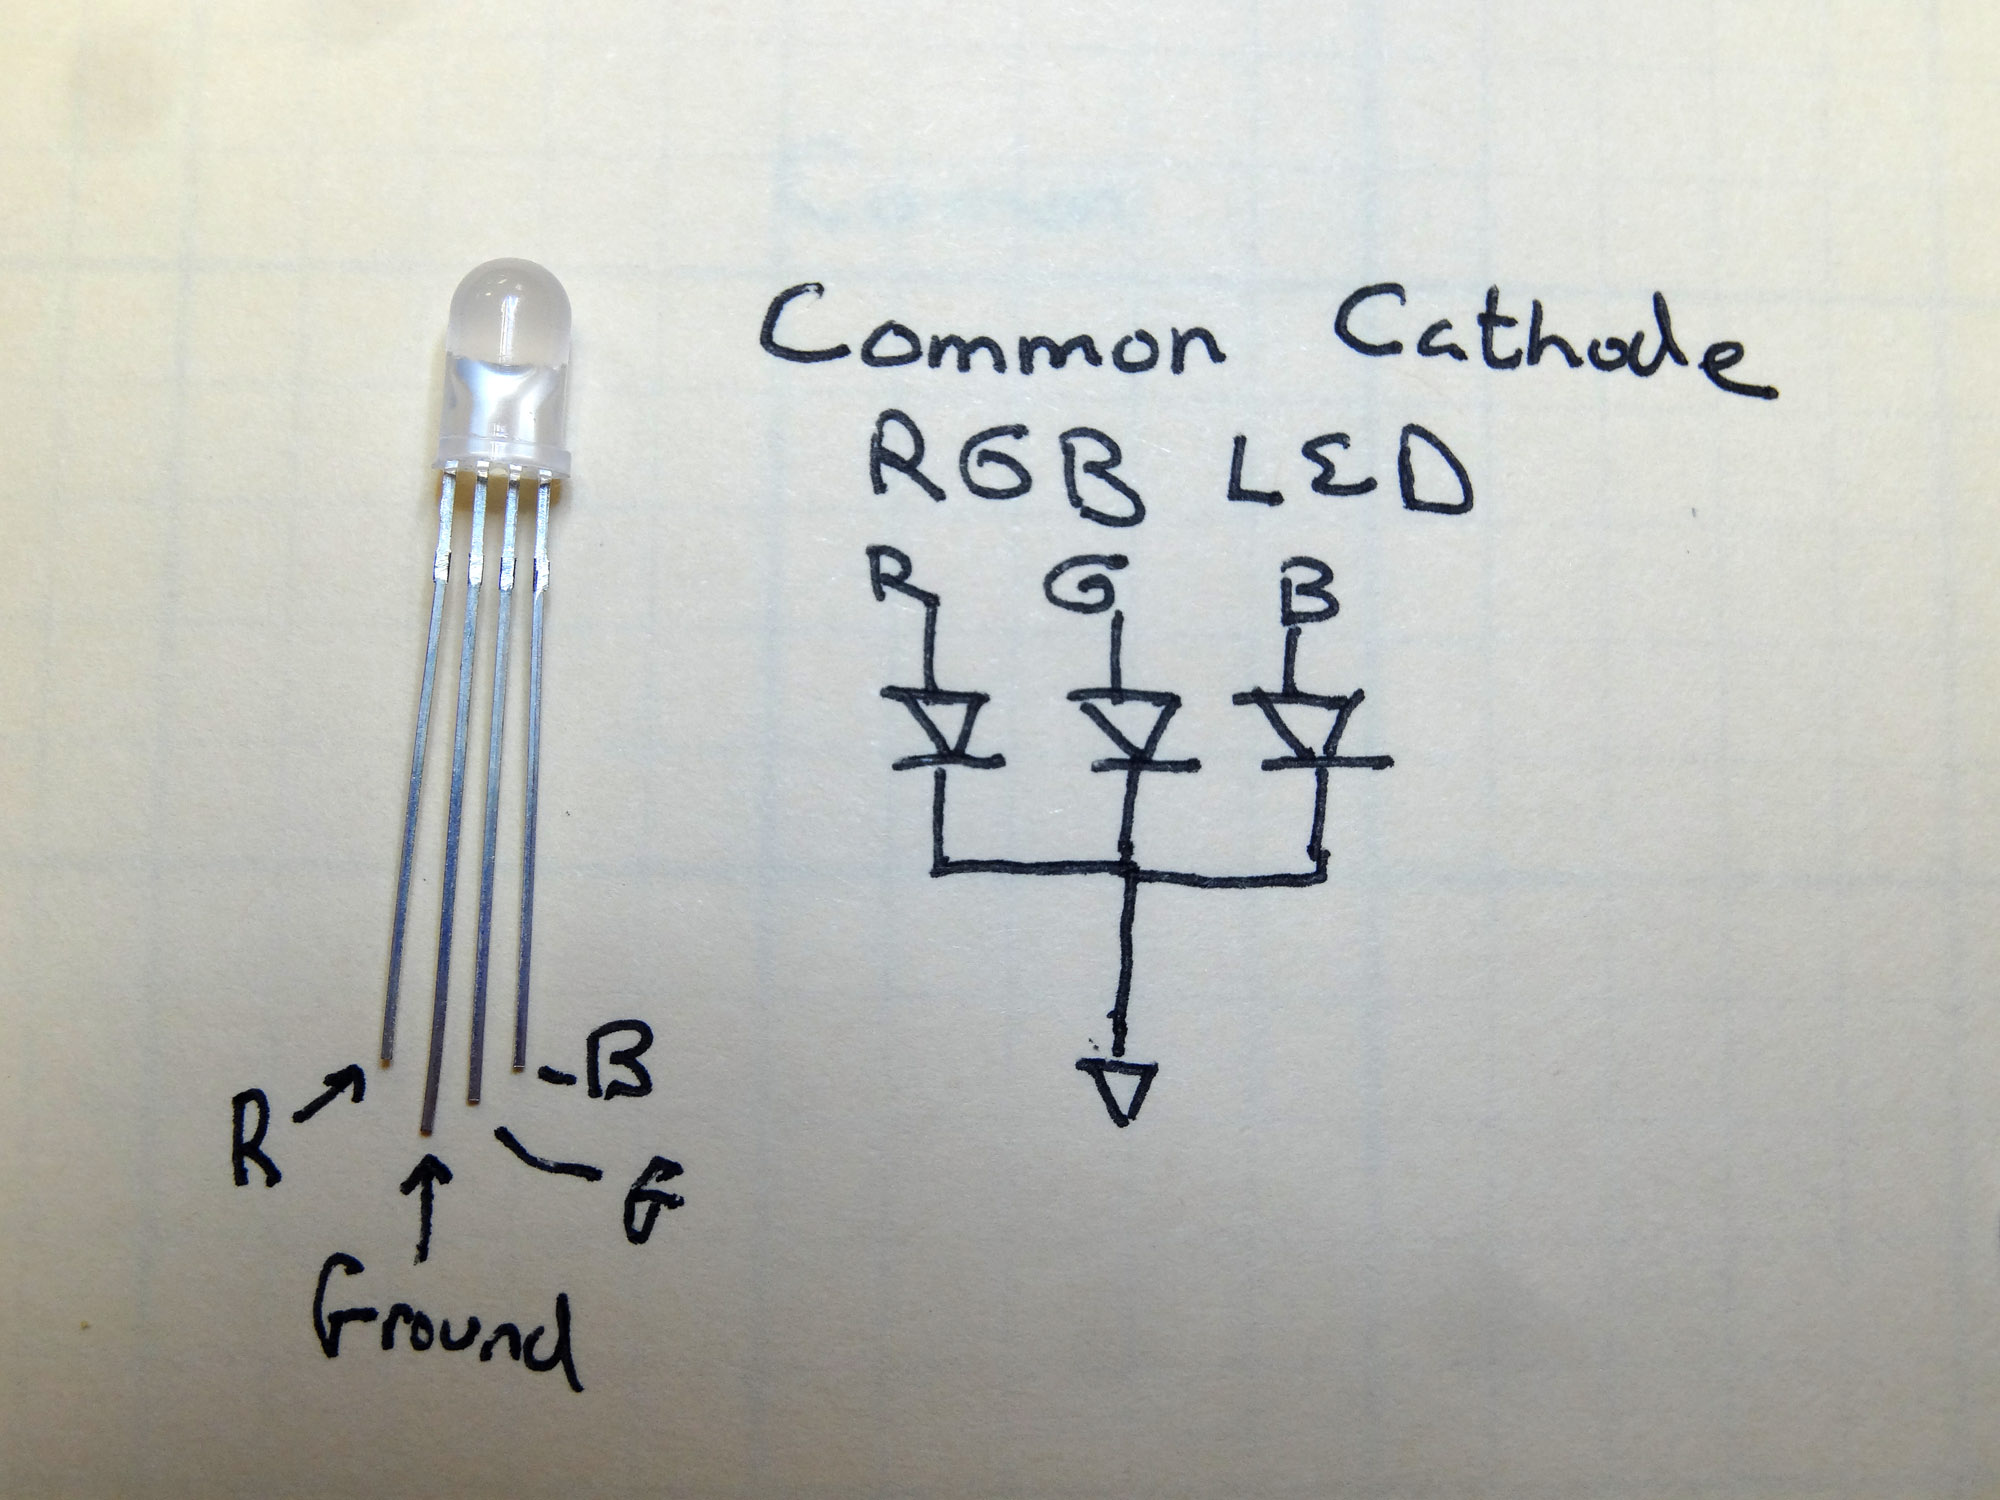 Common Cathode
RGB LED
R G B
B
R
G
Ground